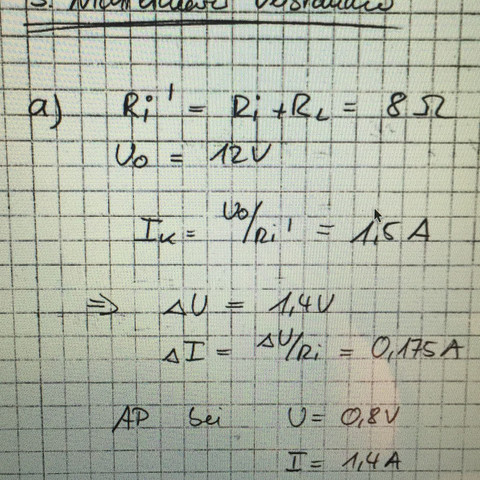 a) Ri' = Ri + RL = 8 Ω
U0 = 12V
IK = U0/Ri' = 1,5 A
⇒ ΔU = 1,4V
ΔI = ΔU/Ri = 0,175 A
AP bei U = 0,8V
I = 1,4 A